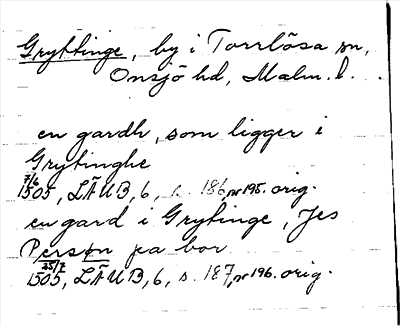 Gryttinge, by i Torrlösa sn,
Onsjö hd, Malm. l.
en gardh, som ligger i
Grytinghe
7/6
1505, LÄUB, 6, s. 186, nr 195. orig.
en gard i Grytinge, Jes
Persøn pa bor
25/7
1505, LÄUB, 6, s. 187, nr 196. orig.